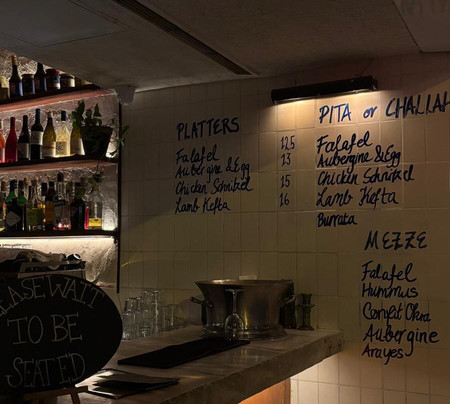 PLATTERS
Falafel 12.5
Aubergine & Egg 13
Chicken Schnitzel 15
Lamb Kefta 16
PITA or CHALLAH
Falafel
Aubergine & Egg
Chicken Schnitzel
Lamb Kefta
Burrata
MEZZE
Falafel
Hummus
Confit Okra
Aubergine
Arayes
EASE WAIT
TO BE
SEATED